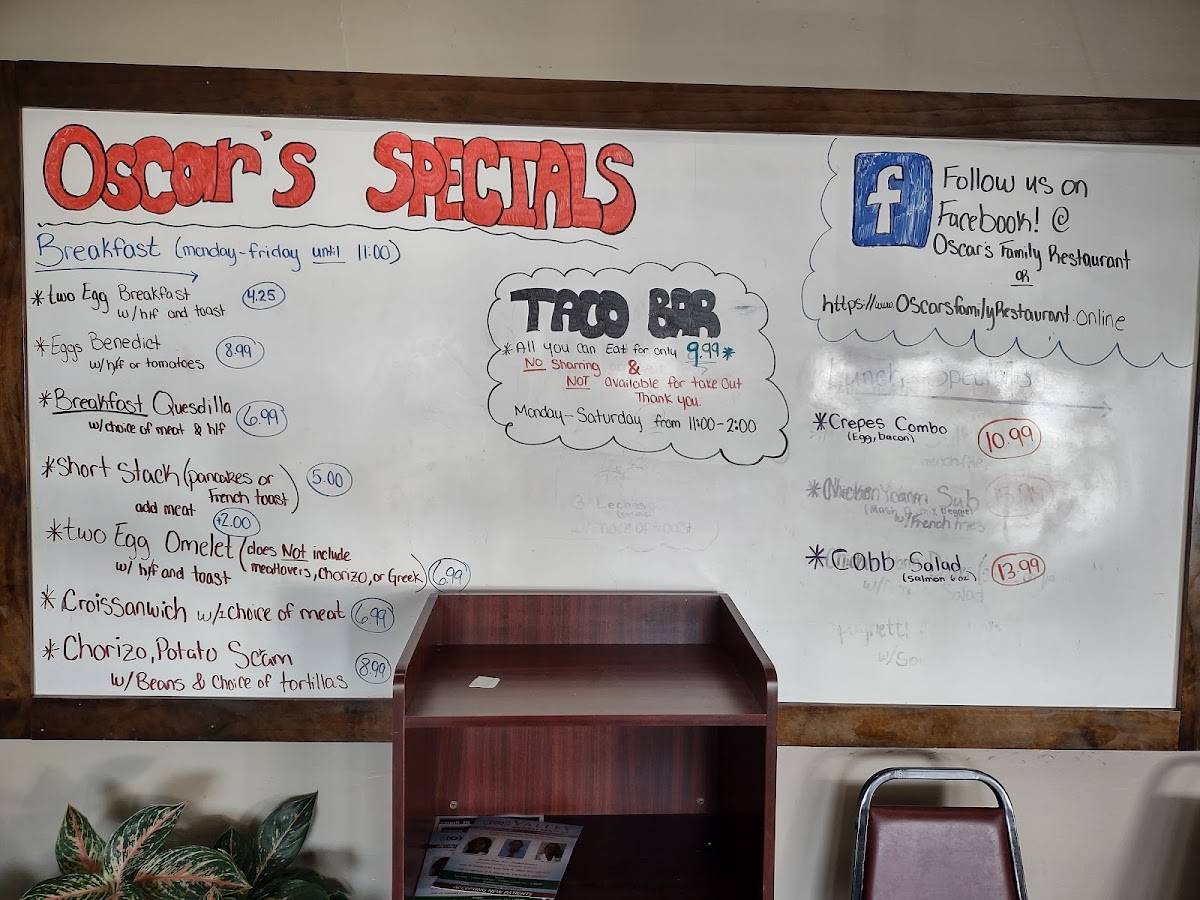 Oscar's SPECIALS
Breakfast (monday-friday until 11:00)
*two Egg Breakfast 4.25
w/h/f and toast
*Eggs Benedict 8.99
w/h/f or tomatoes
*Breakfast Quesdilla 6.99
w/choice of meat & h/f
*Short Stack (pancakes or 5.00
French toast)
add meat +2.00
*two Egg Omelet (does Not include
w/ h/f and toast meatlovers, Chorizo, or Greek) 6.99
*Croissanwich w/choice of meat 6.99
*Chorizo, Potato Scam 8.99
w/Beans & Choice of tortillas
TACO BAR
*All you can Eat for only 9.99*
No Sharring &
NOT available for take Out
Thank you.
Monday-Saturday from 11:00-2:00
f
Follow us on
Facebook! @
Oscar's Family Restaurant
OR
https://www.OscarsfamilyRestaurant.online
Lunch Specials
*Crepes Combo 10.99
(Egg, bacon)
Sub
w/French fries
*Cobb Salad 13.99
(salmon 6oz)
Salad